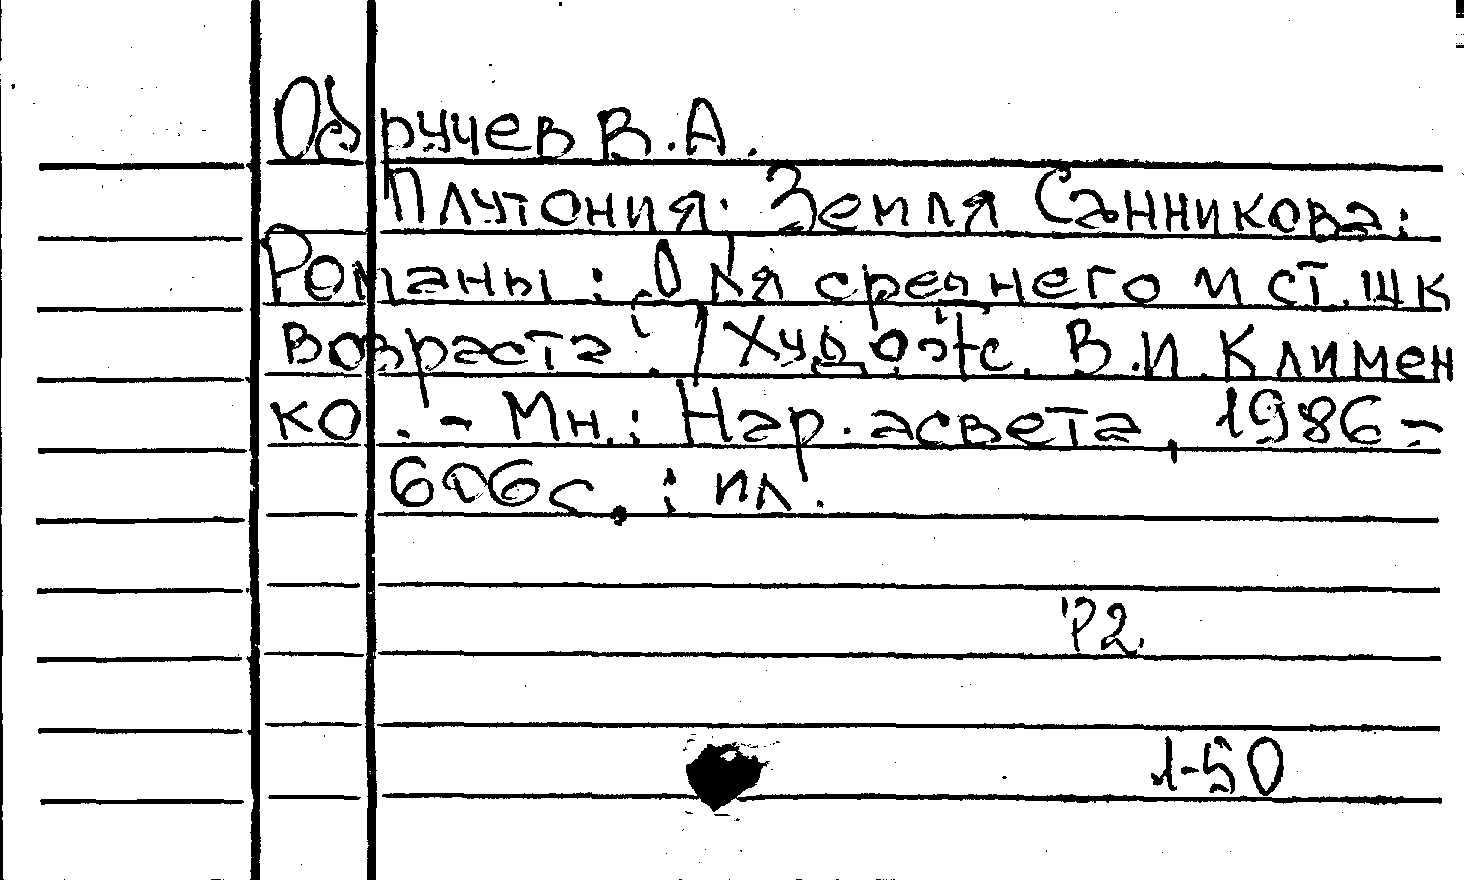 Обручев В.А.
Плутония. Земля Санникова:
Романы: Для среднего и ст. шк
возраста. / Худож. В.И. Климен
ко. - Мн.: Нар. асвета, 1986 -
606 с. : ил.
Р2
1-50